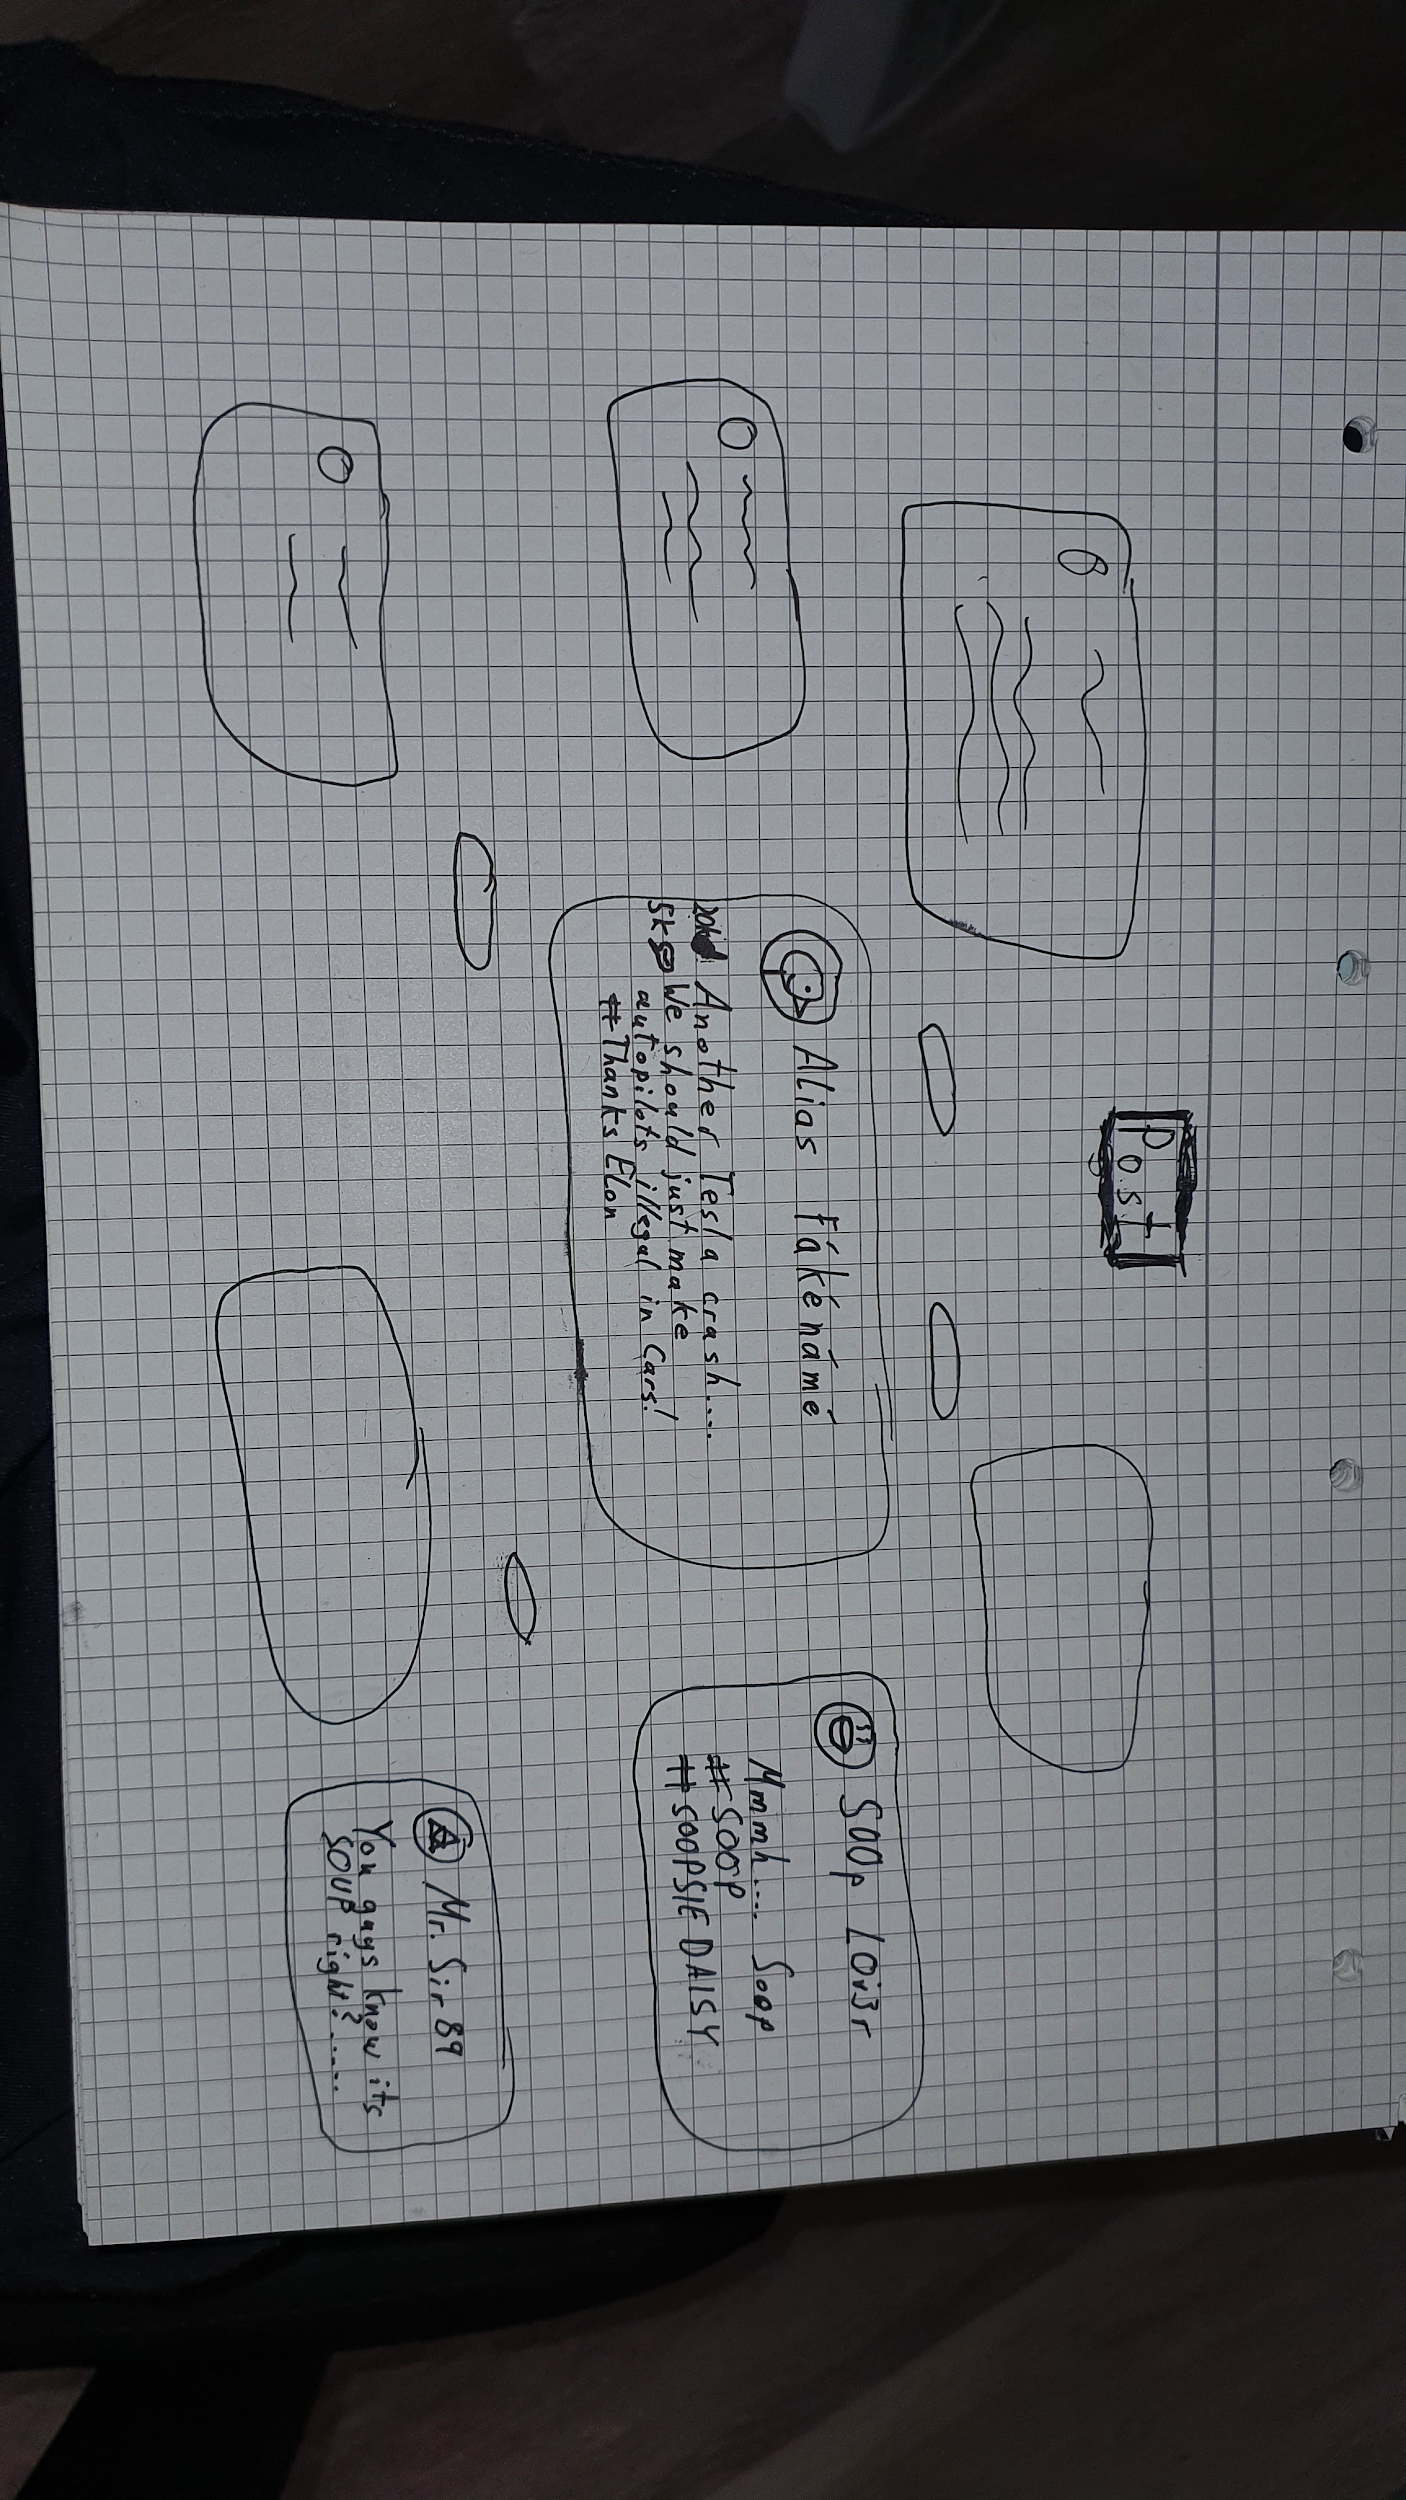 Post
Alias Fákénámé
20k Another Tesla crash....
5k We should just make
autopilots illegal in Cars!
#Thanks Elon
Soop Lov3r
Mmmh.... Soop
#Soop
#SOOPSIE DAISY
Mr. Sir 89
You guys know its
SOUP right?.....